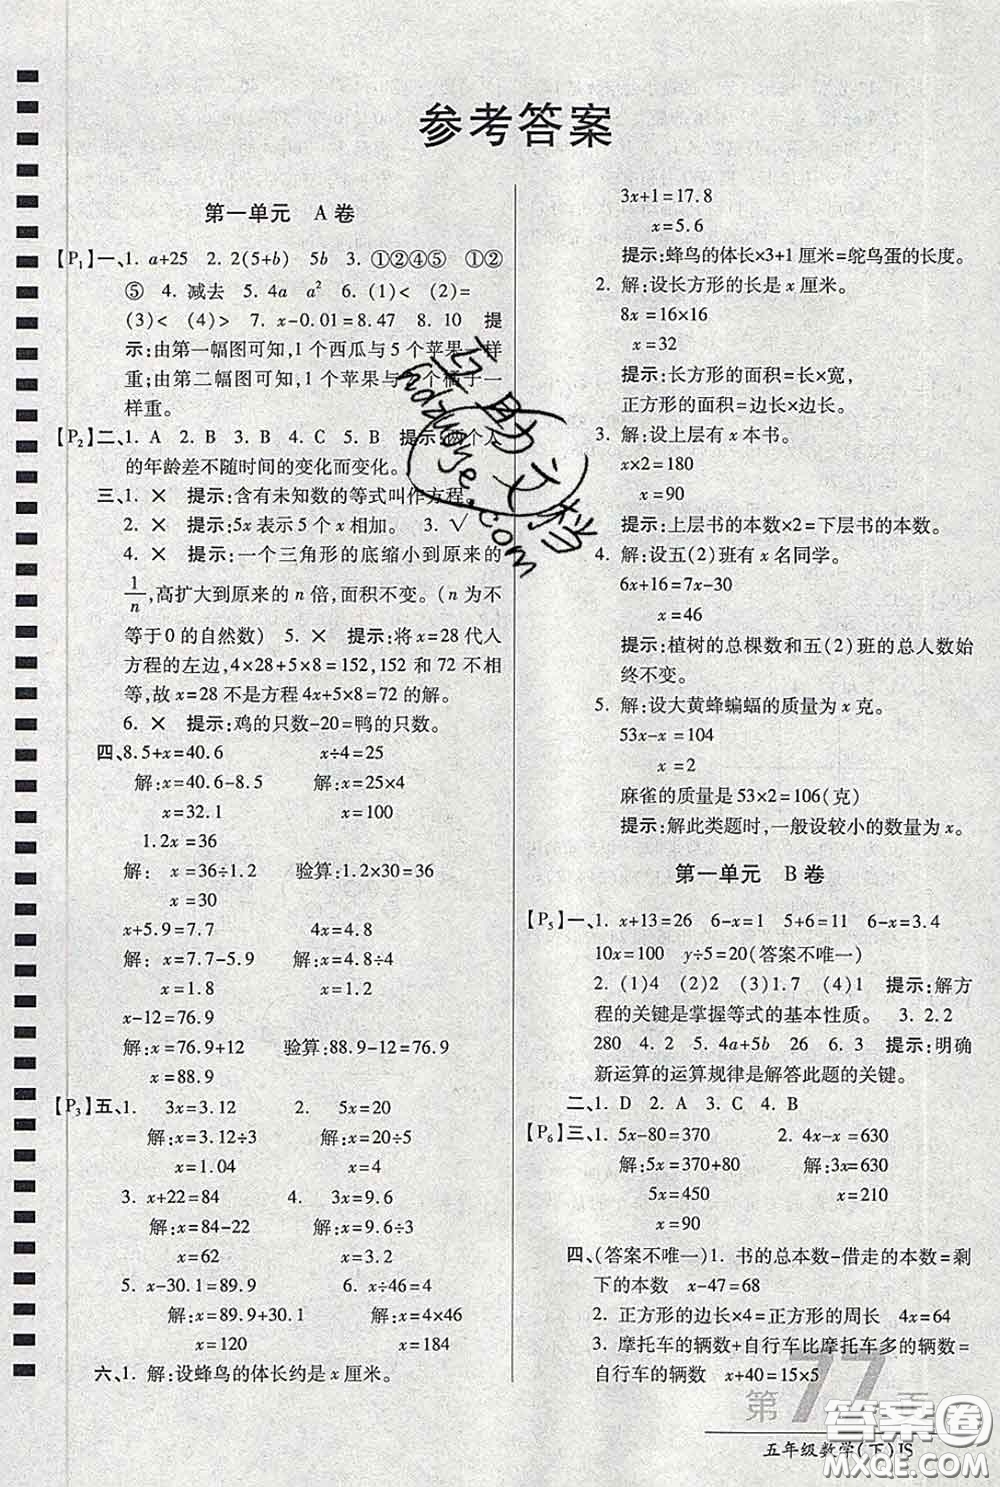 参考答案
第一单元 A卷
【P₁】一、1. a+25 2. 2(5+b) 5b 3. ①②④⑤ ①②
⑤ 4. 减去 5. 4a a² 6. (1)< (2)=
(3)< (4)> 7. x-0.01=8.47 8. 10 提
示:由第一幅图可知,1个西瓜与5个苹果一样
重;由第二幅图可知,1个苹果与 个橘子一
样重。
【P₂】二、1. A 2. B 3. B 4. C 5. B 提示:两个人
的年龄差不随时间的变化而变化。
三、1. × 提示:含有未知数的等式叫作方程。
2. × 提示:5x表示5个x相加。 3. √
4. × 提示:一个三角形的底缩小到原来的
1/n,高扩大到原来的n倍,面积不变。(n为不
等于0的自然数) 5. × 提示:将x=28代入
方程的左边,4×28+5×8=152,152和72不相
等,故x=28不是方程4x+5×8=72的解。
6. × 提示:鸡的只数-20=鸭的只数。
四、8.5+x=40.6 x÷4=25
解:x=40.6-8.5 解:x=25×4
x=32.1 x=100
1.2x=36
解: x=36÷1.2 验算:1.2×30=36
x=30
x+5.9=7.7 4x=4.8
解: x=7.7-5.9 解:x=4.8÷4
x=1.8 x=1.2
x-12=76.9
解:x=76.9+12 验算:88.9-12=76.9
x=88.9
【P₃】五、1. 3x=3.12 2. 5x=20
解:x=3.12÷3 解:x=20÷5
x=1.04 x=4
3. x+22=84 4. 3x=9.6
解:x=84-22 解:x=9.6÷3
x=62 x=3.2
5. x-30.1=89.9 6. x÷46=4
解:x=89.9+30.1 解:x=4×46
x=120 x=184
六、1. 解:设蜂鸟的体长约是x厘米。
3x+1=17.8
x=5.6
提示:蜂鸟的体长×3+1厘米=鸵鸟蛋的长度。
2. 解:设长方形的长是x厘米。
8x=16×16
x=32
提示:长方形的面积=长×宽,
正方形的面积=边长×边长。
3. 解:设上层有x本书。
x×2=180
x=90
提示:上层书的本数×2=下层书的本数。
4. 解:设五(2)班有x名同学。
6x+16=7x-30
x=46
提示:植树的总棵数和五(2)班的总人数始
终不变。
5. 解:设大黄蜂蝙蝠的质量为x克。
53x-x=104
x=2
麻雀的质量是53×2=106(克)
提示:解此类题时,一般设较小的数量为x。
第一单元 B卷
【P₅】一、1. x+13=26 6-x=1 5+6=11 6-x=3.4
10x=100 y÷5=20(答案不唯一)
2. (1)4 (2)2 (3)1.7 (4)1 提示:解方
程的关键是掌握等式的基本性质。 3. 2.2
280 4. 2 5. 4a+5b 26 6. 3 提示:明确
新运算的运算规律是解答此题的关键。
二、1. D 2. A 3. C 4. B
【P₆】三、1. 5x-80=370 2. 4x-x=630
解:5x=370+80 解:3x=630
5x=450 x=210
x=90
四、(答案不唯一)1. 书的总本数-借走的本数=剩
下的本数 x-47=68
2. 正方形的边长×4=正方形的周长 4x=64
3. 摩托车的辆数+自行车比摩托车多的辆数=
自行车的辆数 x+40=15×5
第77页
五年级数学(下)JS
答案圈
MXQE.COM